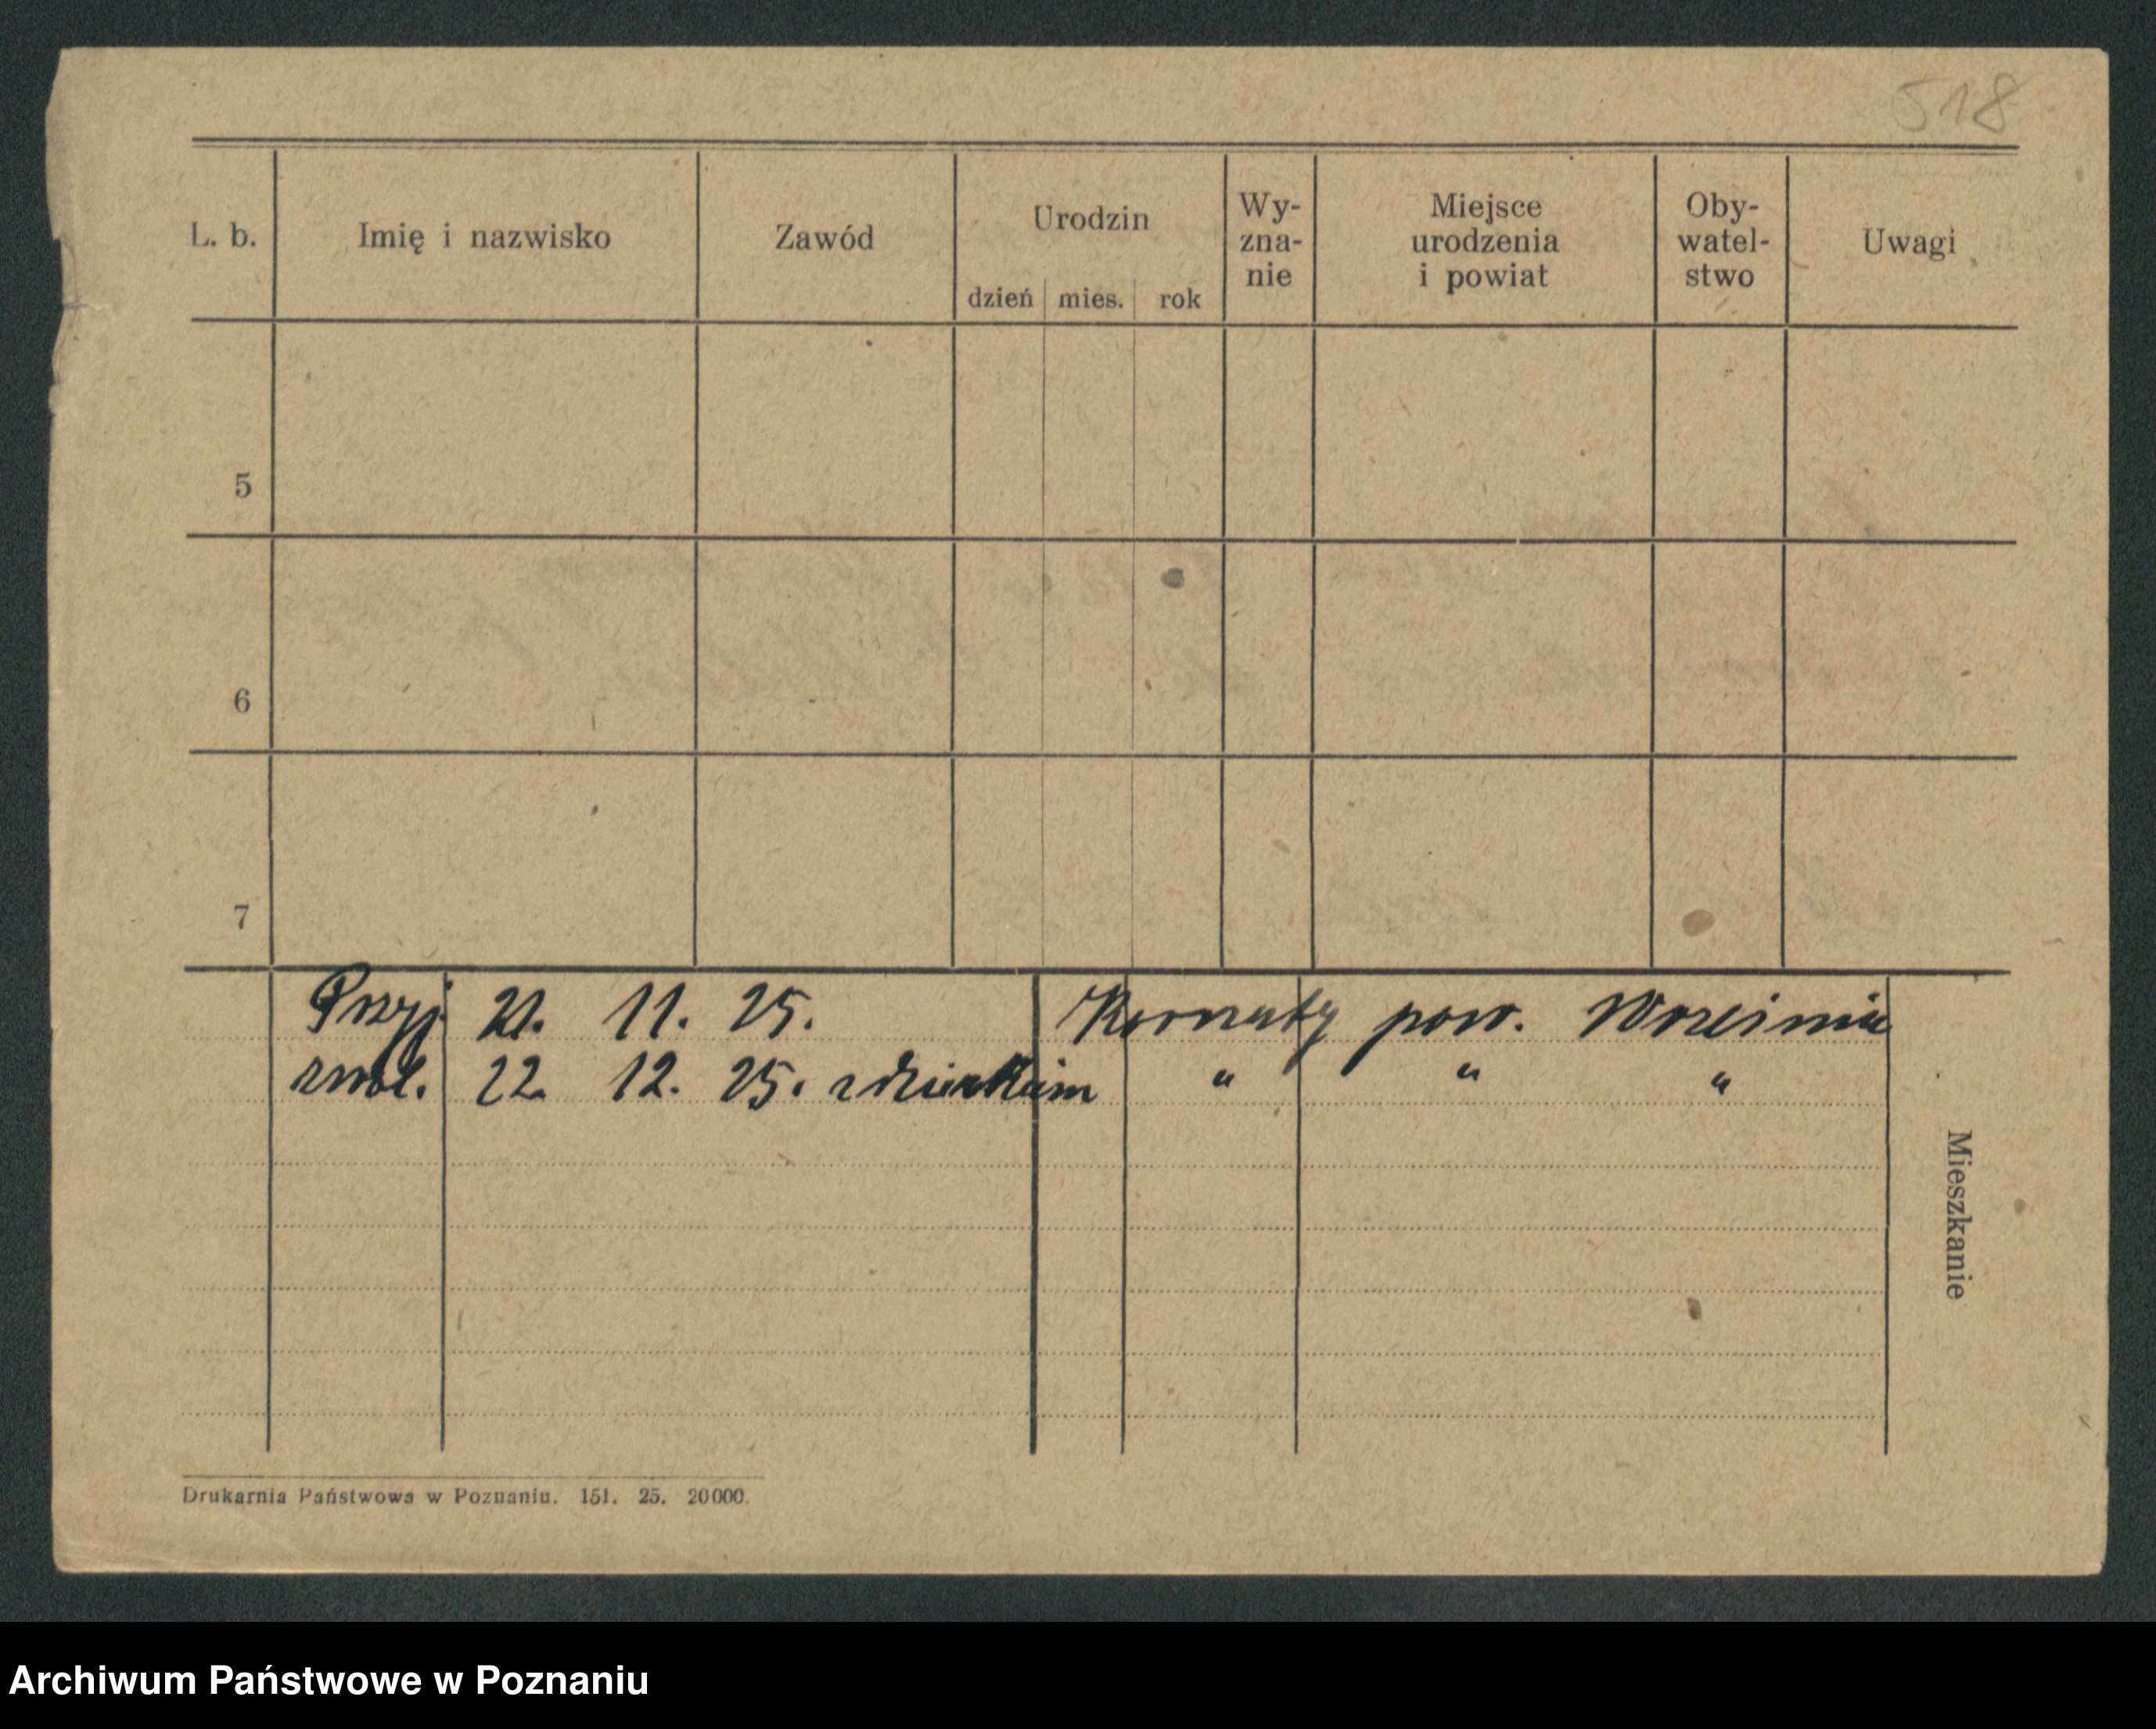 518
L. b. Imię i nazwisko Zawód Urodzin dzień mies. rok Wy-zna-nie Miejsce urodzenia i powiat Oby-watel-stwo Uwagi
5
6
7
Przyj. 21. 11. 25. Kornaty pow. Września
zwol. 22. 12. 25. z dzieckiem " " "
Mieszkanie
Drukarnia Państwowa w Poznaniu. 151. 25. 20000.
Archiwum Państwowe w Poznaniu